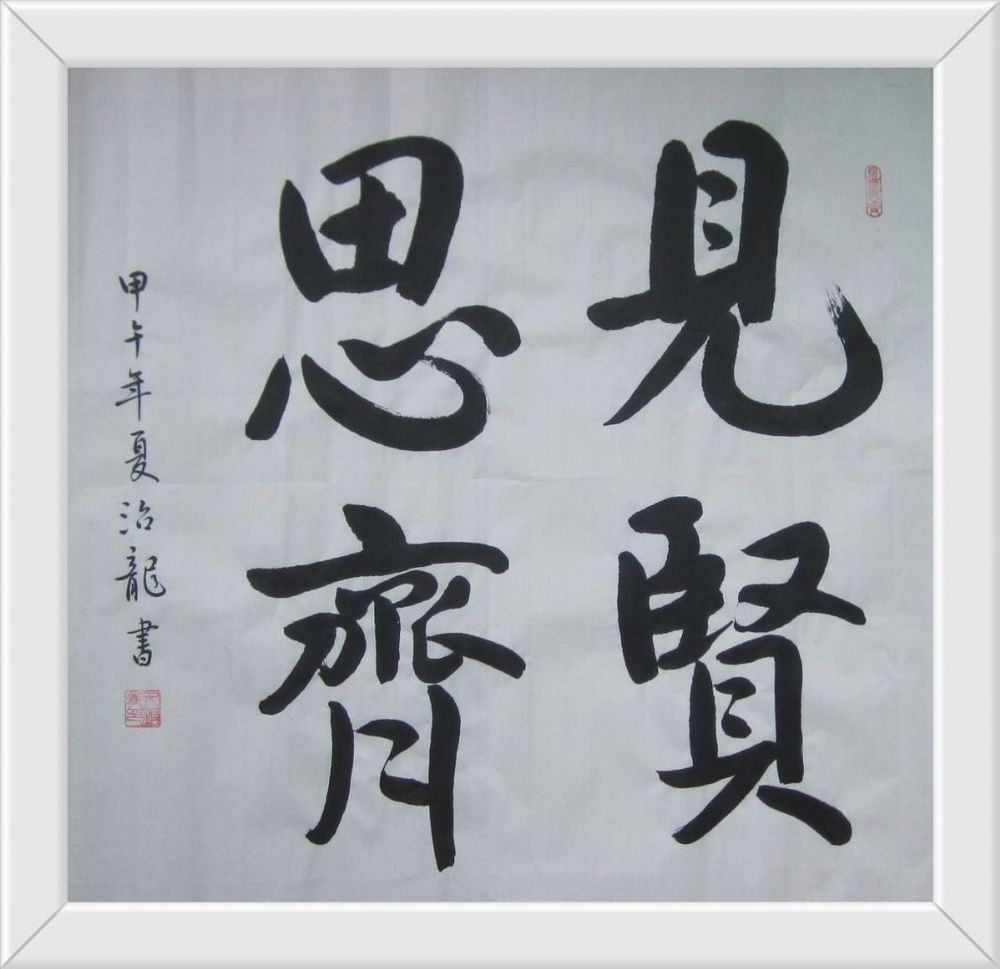 見賢
思齊
甲午年夏治龍書